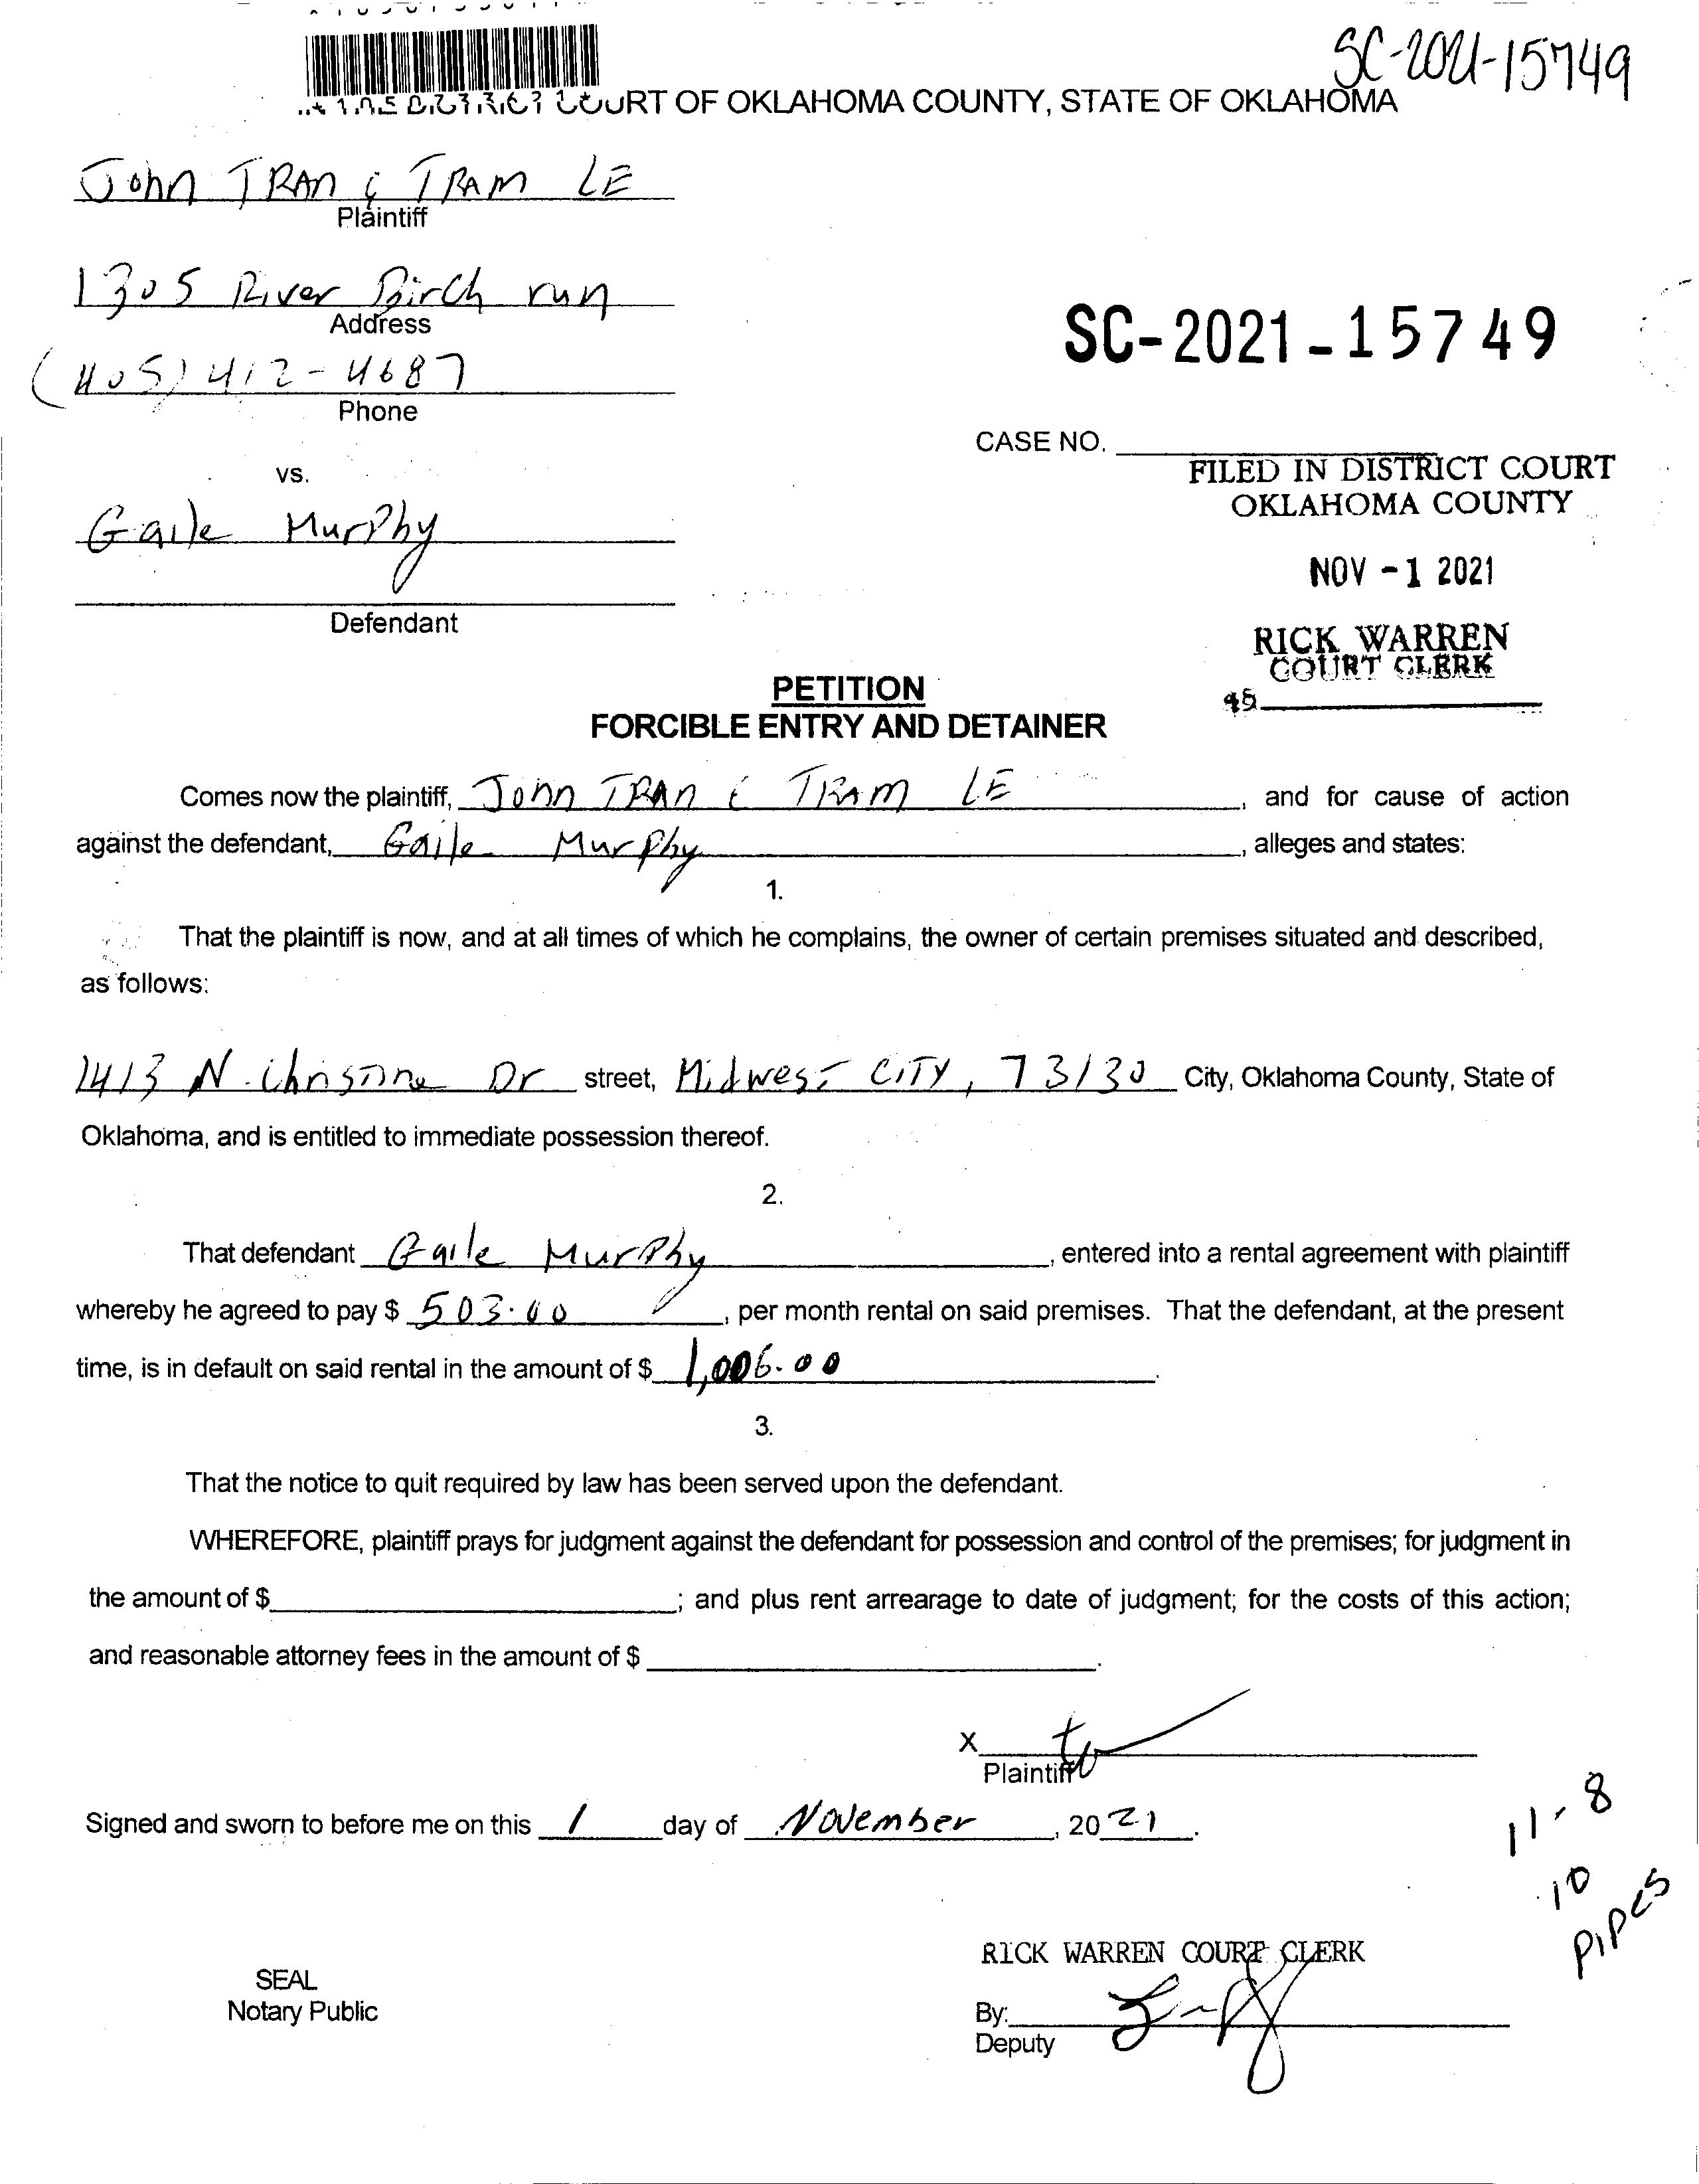 SC-2021-15749
COURT OF OKLAHOMA COUNTY, STATE OF OKLAHOMA
John TRAN & TRAM LE
Plaintiff
1305 River Birch run
Address
(405) 412-4687
Phone
SC-2021-15749
CASE NO.
vs.
FILED IN DISTRICT COURT
OKLAHOMA COUNTY
Gaile Murphy
NOV -1 2021
Defendant
RICK WARREN
COURT CLERK
PETITION
FORCIBLE ENTRY AND DETAINER
Comes now the plaintiff, John TRAN & TRAM LE, and for cause of action
against the defendant, Gaile Murphy, alleges and states:
1.
That the plaintiff is now, and at all times of which he complains, the owner of certain premises situated and described,
as follows:
1413 N. Christine Dr street, Midwest CITY, 73130 City, Oklahoma County, State of
Oklahoma, and is entitled to immediate possession thereof.
2.
That defendant Gaile Murphy, entered into a rental agreement with plaintiff
whereby he agreed to pay $ 503.00, per month rental on said premises. That the defendant, at the present
time, is in default on said rental in the amount of $ 1,006.00.
3.
That the notice to quit required by law has been served upon the defendant.
WHEREFORE, plaintiff prays for judgment against the defendant for possession and control of the premises; for judgment in
the amount of $; and plus rent arrearage to date of judgment; for the costs of this action;
and reasonable attorney fees in the amount of $.
X
Plaintiff
Signed and sworn to before me on this 1 day of November, 2021.
11-8
10
PIPES
RICK WARREN COURT CLERK
SEAL
Notary Public
By:
Deputy